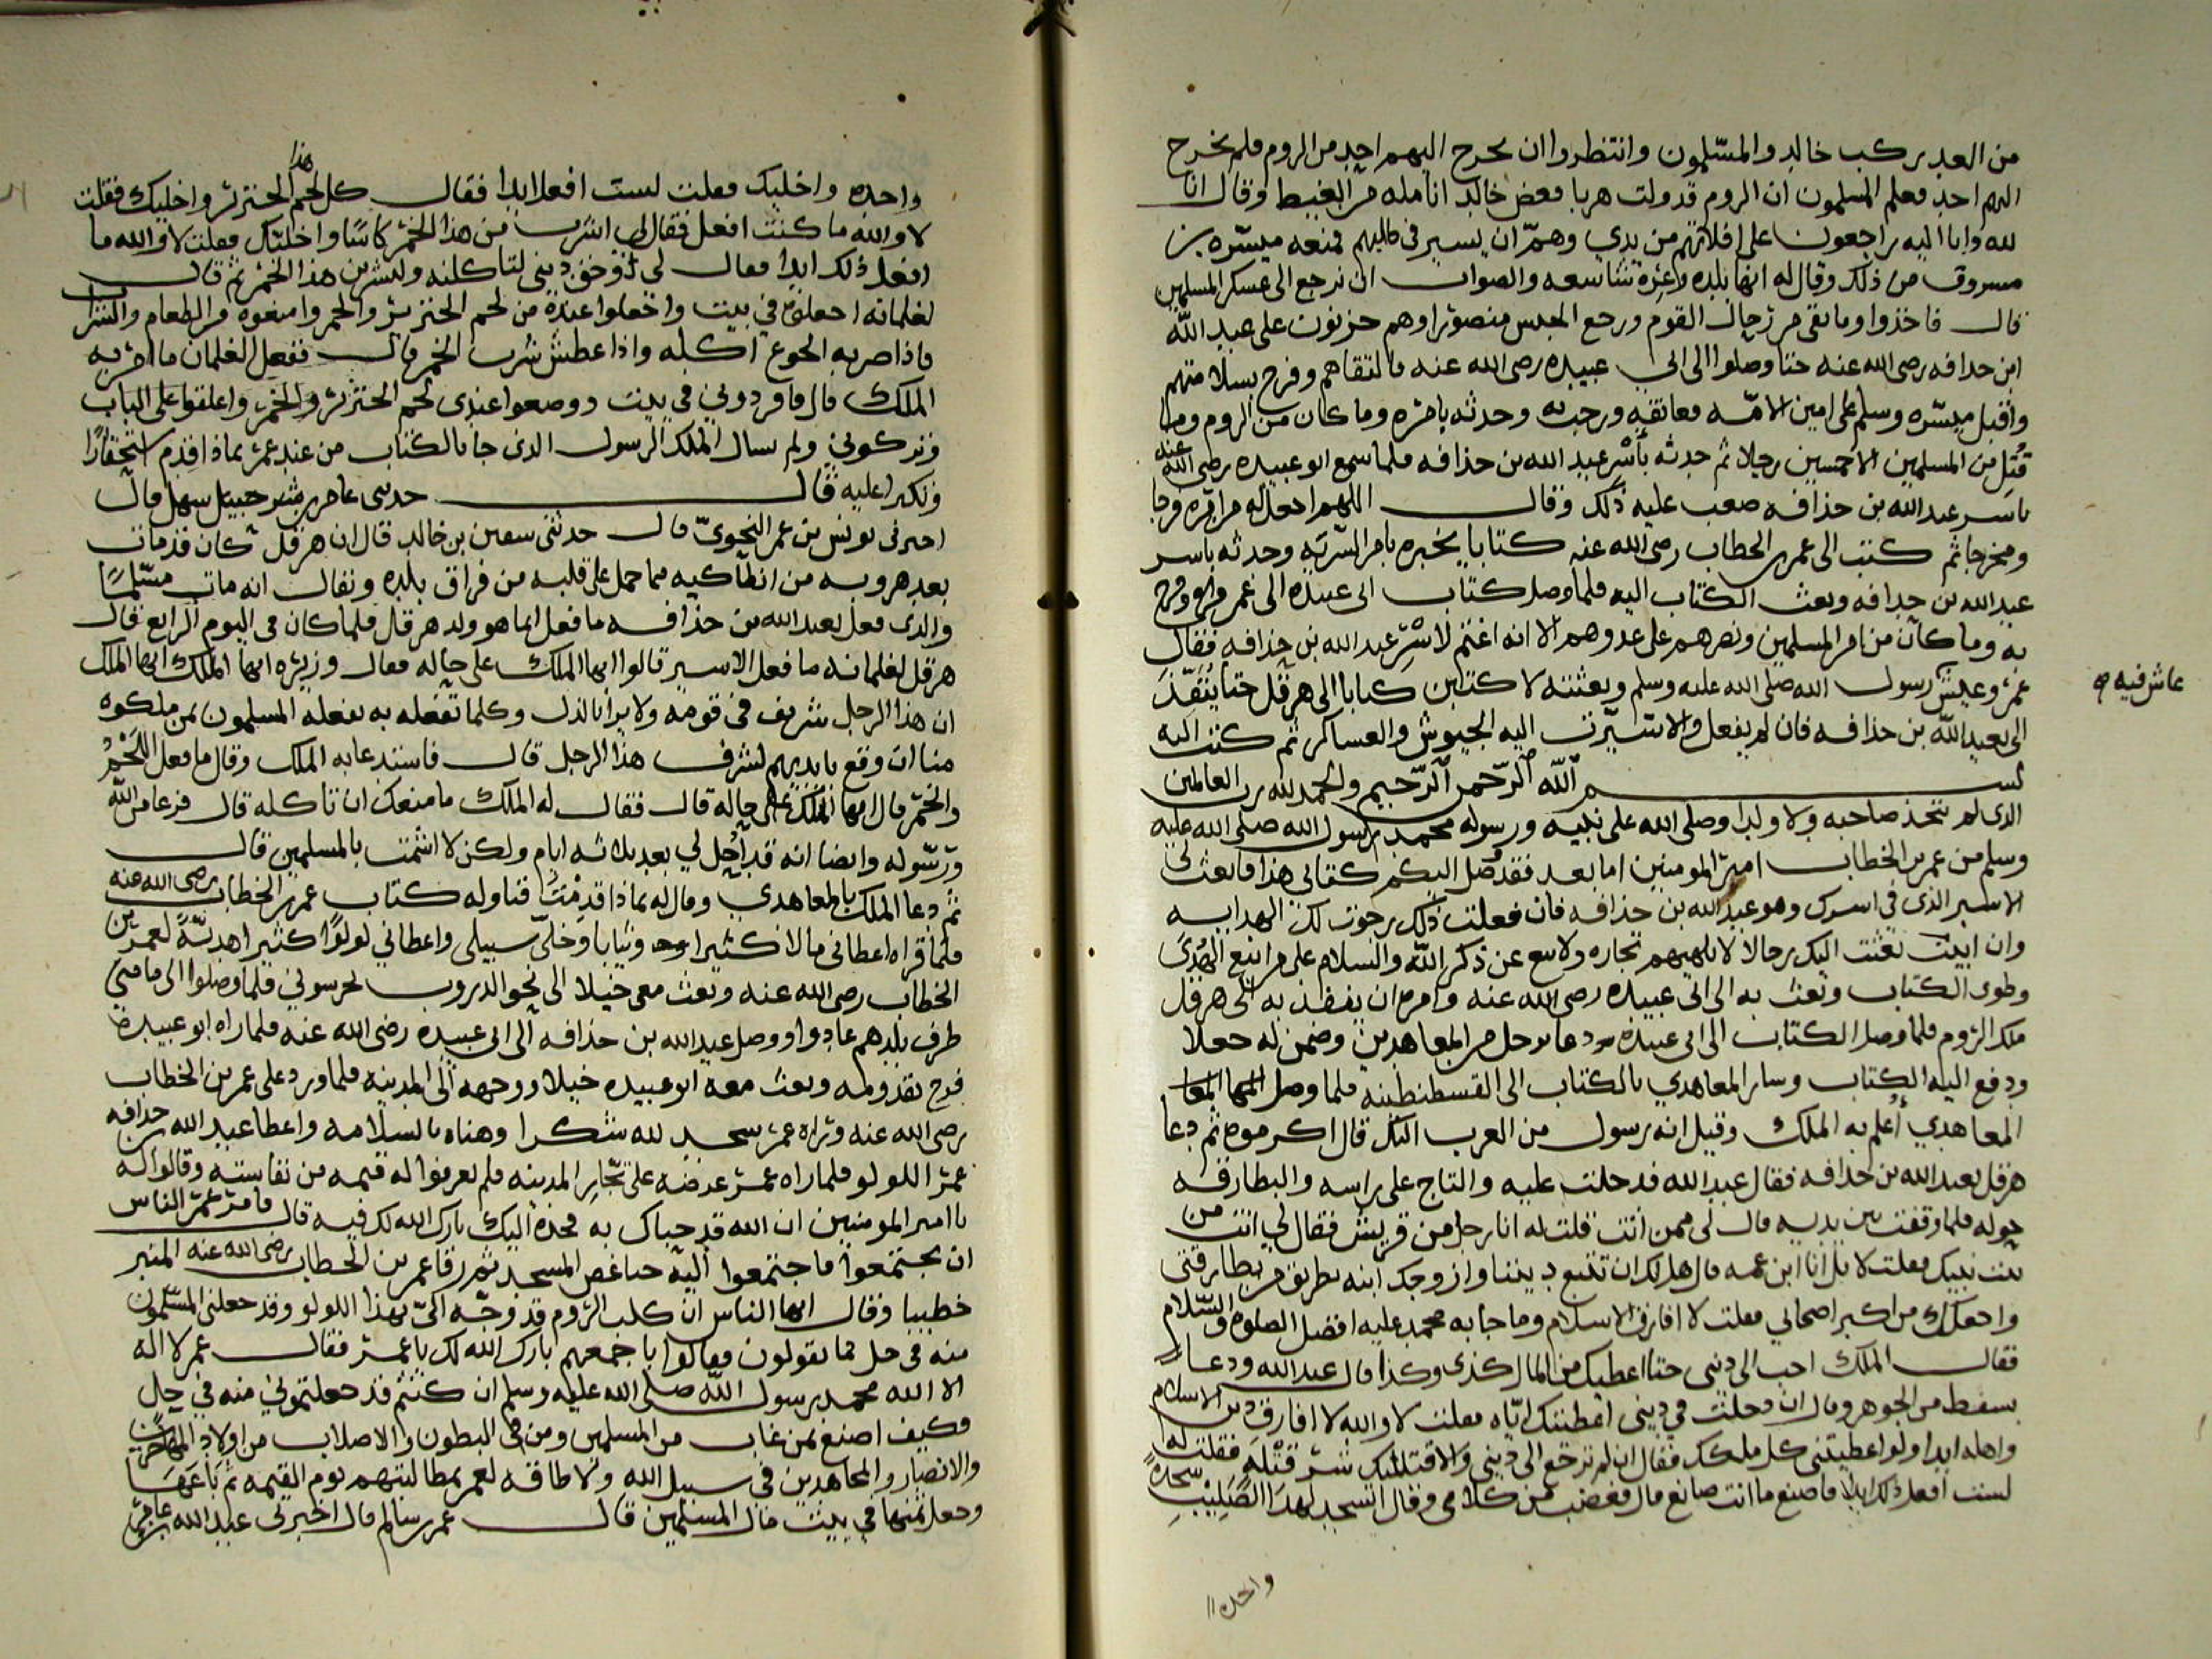 من الغد ركب خالد والمسلمون وانتظروا ان يخرج اليهم احد من الروم فلم يخرج
اليهم احد فعلم المسلمون ان الروم قد ولت هربا فعض خالد انامله من الغيظ وقال انا
لله وانا اليه راجعون على افلاتهم من يدي وهم ان يسير في طلبهم فمنعه ميسره بن
مسروق من ذلك وقال له انها بلده وعره شاسعه والصواب ان نرجع الى عسكر المسلمين
قال فاخذوا وما بقى من رحال القوم ورجع الجيش منصورا وهم حزنون على عبد الله
ابن حذافه رضى الله عنه حتا وصلوا الى ابي عبيده رضى الله عنه فالتقاهم وفرح بسلامتهم
واقبل ميسره وسلم على امين الامه فعانقه ورحب به وحدثه بامره وما كان من الروم وما
قتل من المسلمين الا خمسين رجلا ثم حدثه بأسر عبد الله بن حذافه فلما سمع ابو عبيده رضى الله عنه
باسر عبد الله بن حذافه صعب عليه ذلك وقال اللهم اجعل له من امره فرجا
ومخرجا ثم كتب الى عمر بن الخطاب رضى الله عنه كتابا يخبره بامر السريه وحدثه باسر
عبد الله بن حذافه وبعث الكتاب اليه فلما وصل كتاب ابى عبيده الى عمر قراه وفرح
به وما كان من امر المسلمين ونصرهم على عدوهم الا انه اغتم لأسر عبد الله بن حذافه فقال
عمر وعيش رسول الله صلى الله عليه وسلم وبعثته لاكتبن كتابا الى هرقل حتا ينفذ
عاش فيه
الى بعبد الله بن حذافه فان لم يفعل والا سيرت اليه الجيوش والعساكر ثم كتب اليه
بسم الله الرحمن الرحيم والحمد لله رب العالمين
الذى لم يتخذ صاحبه ولا ولدا وصلى الله على نبيه ورسوله محمد رسول الله صلى الله عليه
وسلم من عمر بن الخطاب امير المومنين اما بعد فقد وصل اليكم كتابي هذا فابعث لى
الاسير الذى في اسرك وهو عبد الله بن حذافه فان فعلت ذلك رجوت لك الهدايه
وان ابيت بعثت اليك رجالا لا تلهيهم تجاره ولا بيع عن ذكر الله والسلام على من اتبع الهدى
وطوى الكتاب وبعث به الى ابى عبيده رضى الله عنه وامره ان ينفذ به الى هرقل
ملك الروم فلما وصل الكتاب الى ابى عبيده دعا برجل من المعاهدين وضمن له جعلا
ودفع اليه الكتاب وسار المعاهدي بالكتاب الى القسطنطينه فلما وصل اليها
المعاهدي أعلم به الملك وقيل انه رسول من العرب اليك قال اكرموه ثم دعا
هرقل بعبد الله بن حذافه فقال عبد الله فدخلت عليه والتاج على راسه والبطارقه
حوله فلما وقفت بين يديه قال لى ممن انت قلت له انا رجل من قريش فقال لي انت من
بيت نبيك فقلت لا بل انا ابن عمه قال هل لك ان تتبع ديننا وازوجك ابنه بطريق من بطارقتى
واجعلك من اكبر اصحابي فقلت لا افارق الاسلام وما جا به محمد عليه افضل الصلوه والسلام
فقال الملك اجب الى دينى حتا اعطيك من المال كذى وكذا قال عبد الله ودعا
بسفط من الجوهر وقال ان دخلت في دينى اعطيتك اياه فقلت لا والله لا افارق دين الاسلام
واهله ابدا ولو اعطيتنى كل ملكك فقال ان لم ترجع الى دينى والا قتلتك شر قتله فقلت له
لست افعل ذلك ابدا فاصنع ما انت صانع قال فغضب من كلامى وقال اتسجد لهذا الصليب سجده
واحده
واحده واخليك فقلت لست افعل ابدا فقال كل لحم هذا الخنزير واخليك فقلت
لا والله ما كنت افعل فقال لي اشرب من هذا الخمر كاسا واخليك فقلت لا والله ما
افعل ذلك ابدا فقال لي وحق دينى لتاكلنه ولتشربن هذا الخمر ثم قال
لغلمانه اجعلوه في بيت واجعلوا عنده من لحم الخنزير والخمر وامنعوه من الطعام والشراب
فاذا اضر به الجوع اكله واذا عطش شرب الخمر قال ففعل الغلمان ما امر به
الملك قال فافردوني في بيت ووضعوا عندى لحم الخنزير والخمر واغلقوا على الباب
وتركوني ولم يسال الملك الرسول الذى جا بالكتاب من عند عمر بماذا قدم استحقارا
وتكبرا عليه قال حدثنى عامر بن سهل قال
اخبرنى يونس بن عمر النحوي قال حدثنى سفين بن خالد قال ان هرقل كان قد مات
بعد هروبه من انطاكيه مما حمل على قلبه من فراق بلده ويقال انه مات مسلما
والذى فعل بعبد الله بن حذافه ما فعل انما هو ولد هرقل فلما كان فى اليوم الرابع قال
هرقل لغلمانه ما فعل الاسير قالوا ايها الملك على حاله فقال وزيره ايها الملك ايها الملك
ان هذا الرجل شريف فى قومه ولا يرا بالذل وكلما تفعله به يفعله المسلمون بمن ملكوه
منا ان وقع بايديهم لشرف هذا الرجل قال فاستدعا به الملك وقال ما فعل اللحم
والخمر قال ايها الملك على حاله قال فقال له الملك ما منعك ان تاكله قال فزعا من الله
ورسوله وايضا انه قد أحل لي بعد ثلاثه ايام ولكن لا اشمت بالمسلمين قال
ثم دعا الملك بالمعاهدي وقال له بماذا قدمت فناوله كتاب عمر بن الخطاب رضى الله عنه
فلما قراه اعطانى مالا كثيرا وثيابا وخلى سبيلى واعطاني لولوا كثيرا هدية لعمر بن
الخطاب رضى الله عنه وبعث معى خيلا الى نحو الدروب يحرسوني فلما وصلوا الى
طرف بلدهم عادوا ووصل عبد الله بن حذافه الى ابى عبيده رضى الله عنه فلما راه ابو عبيده
فرح بقدومه وبعث معه ابو عبيده خيلا ووجهه الى المدينه فلما ورد على عمر بن الخطاب
رضى الله عنه وراه عمر سجد لله شكرا وهناه بالسلامه واعطا عبد الله بن حذافه
عمر اللولو فلما راه عمر عرضه على تجار المدينه فلم يعرفوا له قيمه من نفاسته وقالوا له
يا امير المومنين ان الله قد حباك به فخذه اليك بارك الله لك فيه قال فامر عمر الناس
ان يجتمعوا فاجتمعوا اليه حتا غص المسجد ثم رقا عمر بن الخطاب رضى الله عنه المنبر
خطيبا وقال ايها الناس ان كلب الروم قد وجه الي بهذا اللولو وقد جعلنى المسلمون
منه فى حل فما تقولون فقالوا باجمعهم بارك الله لك يا عمر فقال عمر لا اله
الا الله محمد رسول الله صلى الله عليه وسلم ان كنتم قد جعلتموني منه في حل
فكيف اصنع بمن غاب من المسلمين ومن فى البطون والاصلاب من اولاد المهاجرين
والانصار والمجاهدين فى سبيل الله ولا طاقه لعمر بمطالبتهم يوم القيمه ثم باعها
وجعل ثمنها في بيت مال المسلمين قال عمر بن سالم قال اخبرنى عبد الله بن عامر